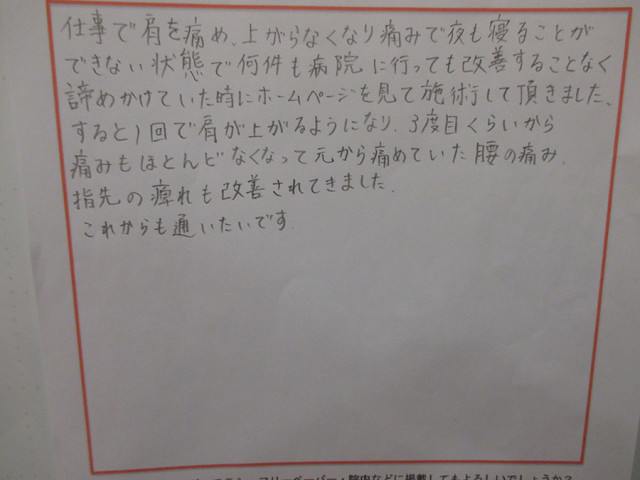 仕事で肩を痛め、上がらなくなり痛みで夜も寝ることが
できない状態で何件も病院に行っても改善することなく
諦めかけていた時にホームページを見て施術して頂きました、
すると1回で肩が上がるようになり、3度目くらいから
痛みもほとんどなくなって元から痛めていた腰の痛み、
指先の痺れも改善されてきました。
これからも通いたいです。
フリーペーパー・院内などに掲載してもよろしいでしょうか？